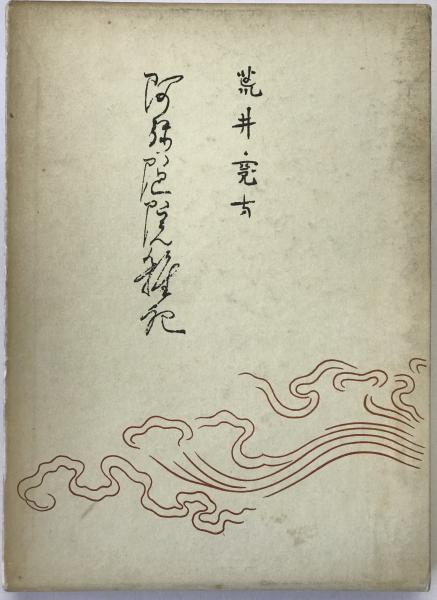 荒井寛方
阿弥陀院雑記